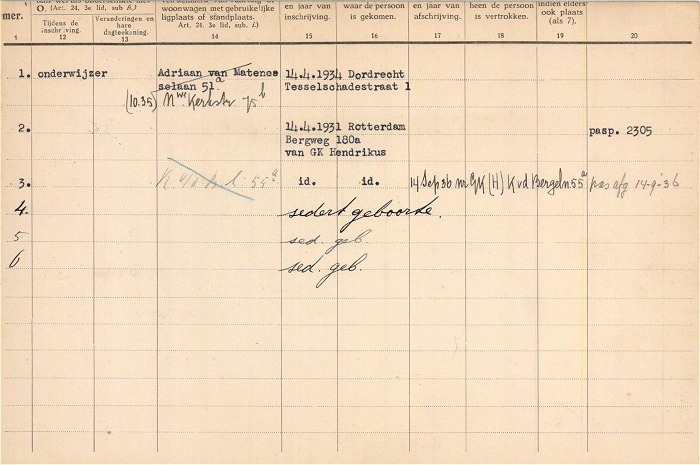 mer.
O. (Art. 24, 3e lid, sub h.)
Tijdens de inschrijving.
Veranderingen en hare dagteekening.
woonwagen met gebruikelijke ligplaats of standplaats.
Art. 24. 3e lid, sub i.)
en jaar van inschrijving.
waar de persoon is gekomen.
en jaar van afschrijving.
heen de persoon is vertrokken.
indien elders ook plaats (als 7).
1 12 13 14 15 16 17 18 19 20
1. onderwijzer Adriaan van Matenes 14.4.1934 Dordrecht
selaan 51a Tesselschadestraat 1
(10.35) Nwe Kerkstr 75b
2. 14.4.1931 Rotterdam pasp. 2305
Bergweg 180a
van GK Hendrikus
3. 55a id. id. 14 Sep 36 nr GK (H) K vd Bergeln 55a pas afg 14-9-'36
4. sedert geboorte.
5 sed. geb.
6 sed. geb.